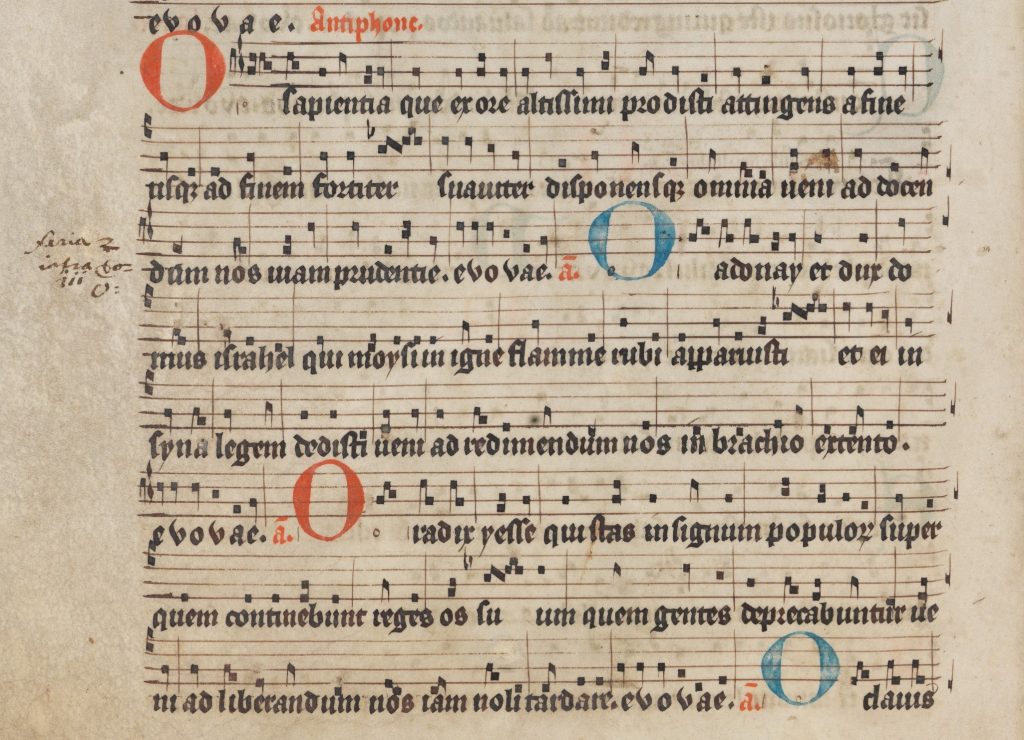 evovae. Antiphone.
O sapientia que ex ore altissimi prodisti attingens a fine
usqꝫ ad finem fortiter suauiter disponensqꝫ omnia ueni ad docen
dum nos uiam prudentie. evovae. ā. O adonay et dux do
feria 2
mus israhel qui moysi in igne flamme rubi apparuisti et ei in
syna legem dedisti ueni ad redimendum nos in brachio extento.
evovae. ā. O radix yesse qui stas in signum populoꝝ super
quem continebunt reges os suum quem gentes deprecabuntur ue
ni ad liberandum nos iam noli tardare. evovae. ā. O clauis